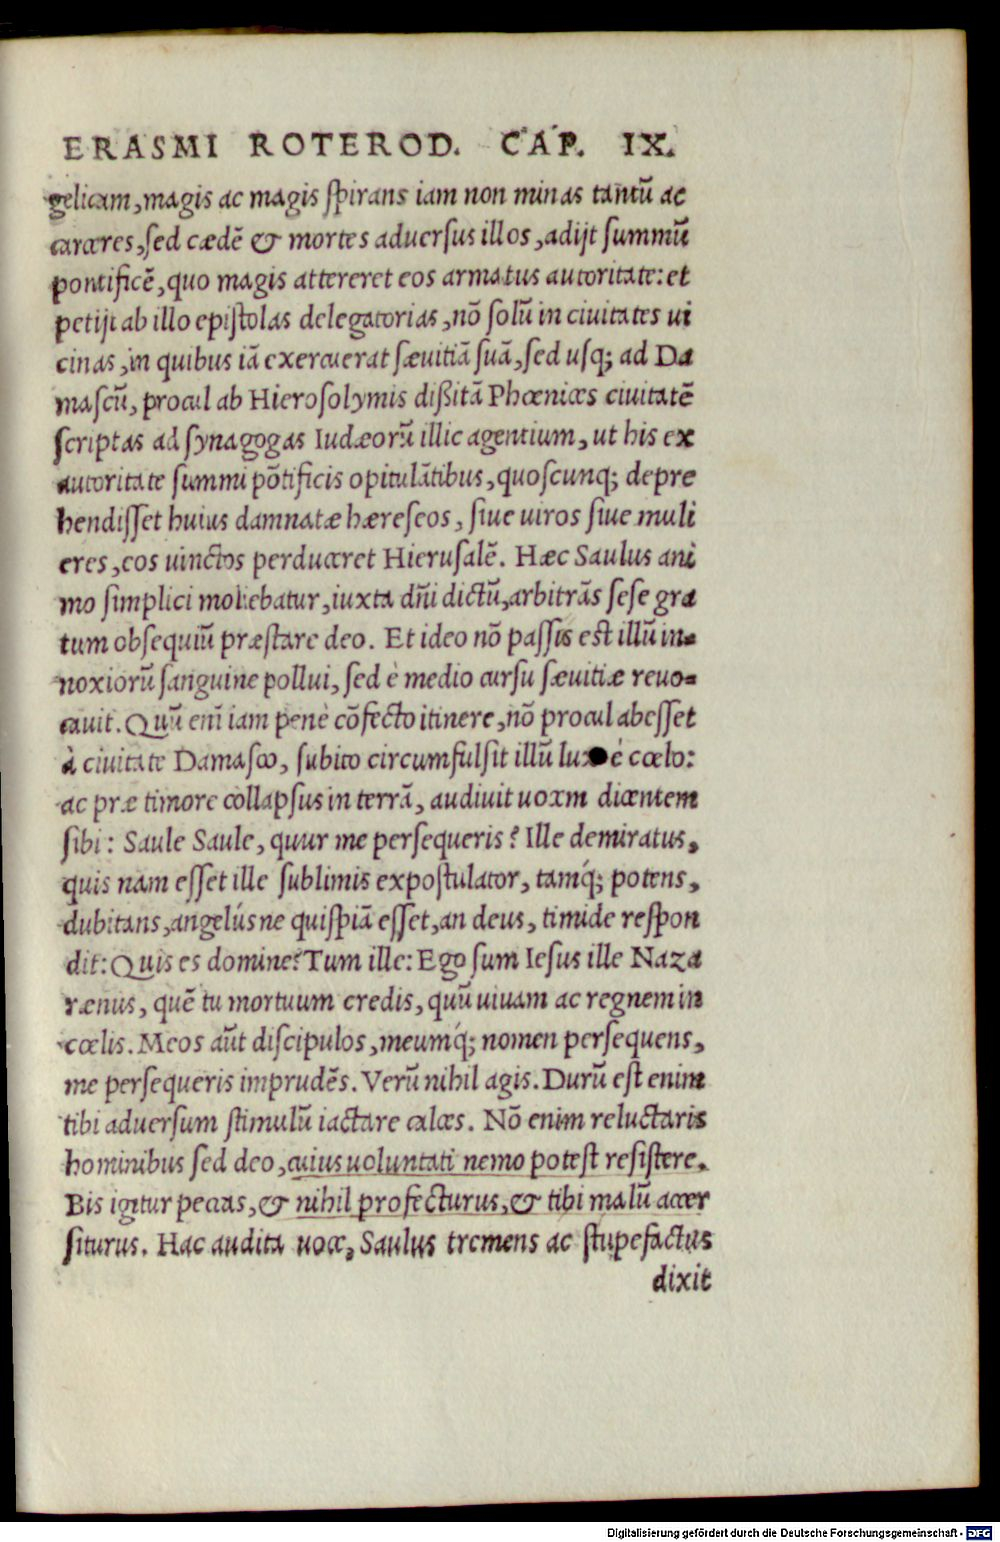 ERASMI ROTEROD. CAP. IX.
gelicam, magis ac magis ſpirans iam non minas tantū ac
carceres, ſed cædē & mortes aduerſus illos, adijt ſummū
pontificē, quo magis attereret eos armatus autoritate: et
petijt ab illo epiſtolas delegatorias, nō ſolū in ciuitates ui
cinas, in quibus iā exercuerat ſæuitiā ſuā, ſed uſq; ad Da
maſcū, procul ab Hieroſolymis dißitā Phœnices ciuitatē
ſcriptas ad ſynagogas Iudæorū illic agentium, ut his ex
autoritate ſummi pōtificis opitulātibus, quoſcunq; depre
hendiſſet huius damnatæ hæreſeos, ſiue uiros ſiue muli
eres, eos uinctos perduceret Hieruſalē. Hæc Saulus ani
mo ſimplici moliebatur, iuxta dn̄i dictū, arbitrās ſeſe gra
tum obſequiū præſtare deo. Et ideo nō paſſus eſt illū in-
noxiorū ſanguine pollui, ſed è medio curſu ſæuitiæ reuo-
cauit. Quū enī iam penè cōfecto itinere, nō procul abeſſet
à ciuitate Damaſco, ſubito circumfulſit illū lux è cœlo:
ac præ timore collapſus in terrā, audiuit uocem dicentem
ſibi: Saule Saule, quur me perſequeris? Ille demiratus,
quis nam eſſet ille ſublimis expoſtulator, tamq́; potens,
dubitans, angelúsne quiſpiā eſſet, an deus, timide reſpon
dit: Quis es domine? Tum ille: Ego ſum Ieſus ille Naza
rænus, quē tu mortuum credis, quū uiuam ac regnem in
cœlis. Meos aūt diſcipulos, meumq́; nomen perſequens,
me perſequeris imprudēs. Verū nihil agis. Durū eſt enim
tibi aduerſum ſtimulū iactare calces. Nō enim reluctaris
hominibus ſed deo, cuius uoluntati nemo poteſt reſiſtere.
Bis igitur peccas, & nihil profecturus, & tibi malū accer
ſiturus. Hac audita uoce, Saulus tremens ac ſtupefactus
dixit
Digitalisierung gefördert durch die Deutsche Forschungsgemeinschaft - DFG